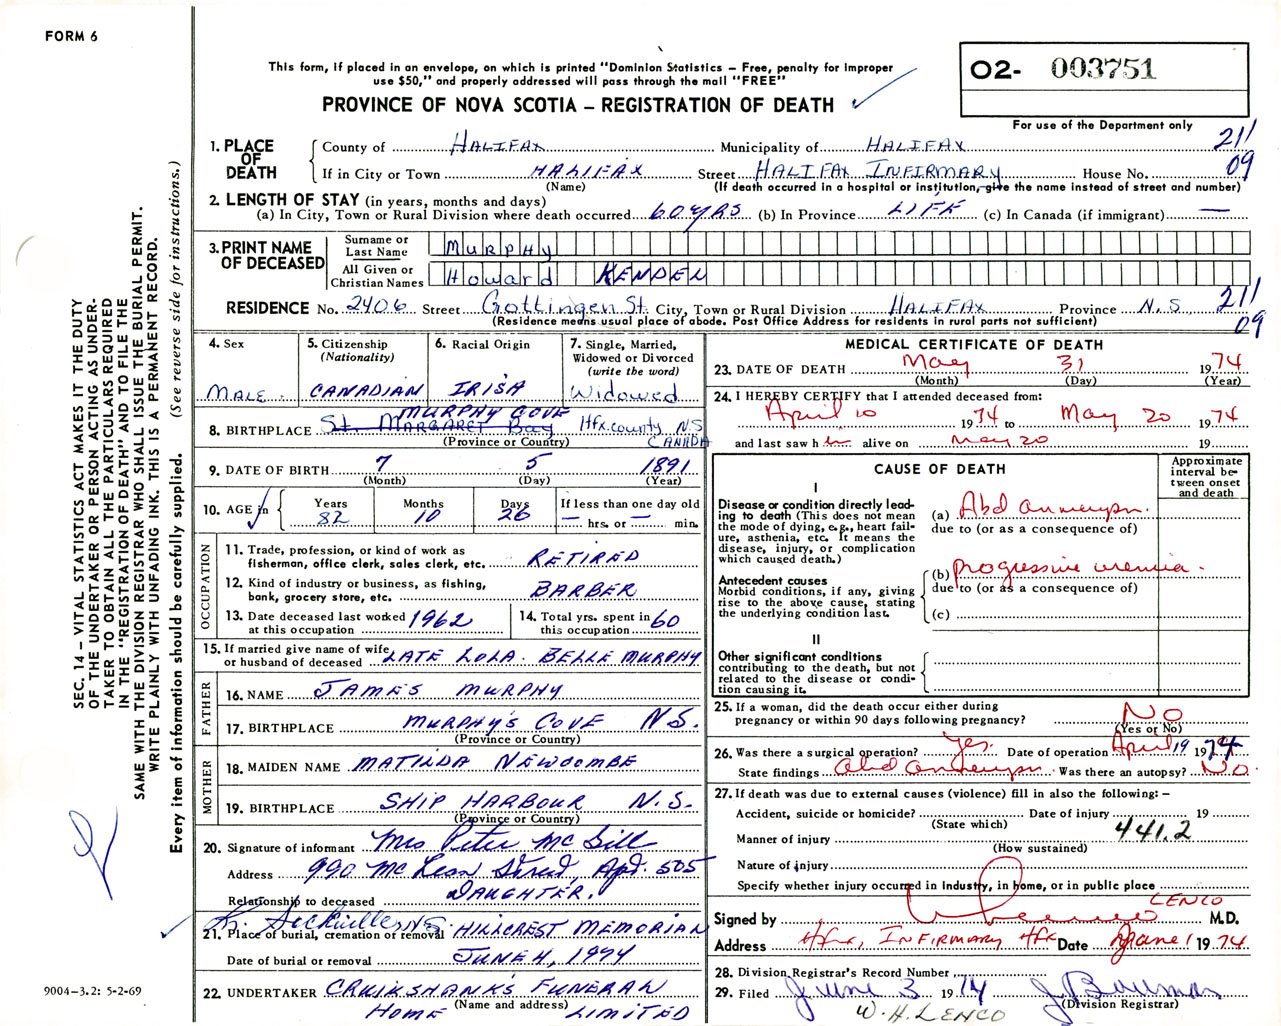 FORM 6
This form, if placed in an envelope, on which is printed "Dominion Statistics – Free, penalty for improper
use $50," and properly addressed will pass through the mail "FREE"
PROVINCE OF NOVA SCOTIA – REGISTRATION OF DEATH
O2- 003751
For use of the Department only
SEC. 14 – VITAL STATISTICS ACT MAKES IT THE DUTY
OF THE UNDERTAKER OR PERSON ACTING AS UNDER-
TAKER TO OBTAIN ALL THE PARTICULARS REQUIRED
IN THE "REGISTRATION OF DEATH" AND TO FILE THE
SAME WITH THE DIVISION REGISTRAR WHO SHALL ISSUE THE BURIAL PERMIT.
WRITE PLAINLY WITH UNFADING INK. THIS IS A PERMANENT RECORD.
Every item of information should be carefully supplied. (See reverse side for instructions.)
1. PLACE OF DEATH
County of HALIFAX Municipality of HALIFAX 211
If in City or Town HALIFAX Street HALIFAX INFIRMARY House No. 09
(Name) (If death occurred in a hospital or institution, give the name instead of street and number)
2. LENGTH OF STAY (in years, months and days)
(a) In City, Town or Rural Division where death occurred 60 YRS (b) In Province LIFE (c) In Canada (if immigrant) —
3. PRINT NAME OF DECEASED
Surname or Last Name MURPHY
All Given or Christian Names Howard KENDEL
RESIDENCE No. 2406 Street Gottingen St. City, Town or Rural Division HALIFAX Province N.S 211
(Residence means usual place of abode. Post Office Address for residents in rural parts not sufficient) 09
4. Sex MALE.
5. Citizenship (Nationality) CANADIAN
6. Racial Origin IRISH
7. Single, Married, Widowed or Divorced (write the word) Widowed
MURPHY COVE
8. BIRTHPLACE St. MARGARET Bay Hfx. county N.S
(Province or Country) CANADA
9. DATE OF BIRTH 7 5 1891
(Month) (Day) (Year)
10. AGE in Years 82 Months 10 Days 26 If less than one day old — hrs. or — min.
OCCUPATION
11. Trade, profession, or kind of work as
fisherman, office clerk, sales clerk, etc. RETIRED
12. Kind of industry or business, as fishing,
bank, grocery store, etc. BARBER
13. Date deceased last worked at this occupation 1962
14. Total yrs. spent in this occupation 60
15. If married give name of wife
or husband of deceased LATE LOLA. BELLE MURPHY
FATHER
16. NAME JAMES MURPHY
17. BIRTHPLACE MURPHY'S COVE N.S.
(Province or Country)
MOTHER
18. MAIDEN NAME MATILDA NEWCOMBE
19. BIRTHPLACE SHIP HARBOUR N.S.
(Province or Country)
20. Signature of informant Mrs Peter McGill
Address 990 McLean Street, Apt. 505
Relationship to deceased DAUGHTER.
Sackville, N.S.
21. Place of burial, cremation or removal HILLCREST MEMORIAL
Date of burial or removal JUNE 4, 1974
22. UNDERTAKER CRUIKSHANK'S FUNERAL
(Name and address)
HOME LIMITED
9004–3.2: 5-2-69
MEDICAL CERTIFICATE OF DEATH
23. DATE OF DEATH May 31 1974
(Month) (Day) (Year)
24. I HEREBY CERTIFY that I attended deceased from:
April 10 1974 to May 20 1974
and last saw h im alive on May 20 19
CAUSE OF DEATH
Approximate interval between onset and death
I
Disease or condition directly leading to death (This does not mean
the mode of dying, e.g., heart failure, asthenia, etc. It means the
disease, injury, or complication
which caused death.)
(a) Abd aneurysm.
due to (or as a consequence of)
Antecedent causes
Morbid conditions, if any, giving
rise to the above cause, stating
the underlying condition last.
(b) progressive uremia.
due to (or as a consequence of)
(c)
II
Other significant conditions
contributing to the death, but not
related to the disease or condition causing it.
25. If a woman, did the death occur either during
pregnancy or within 90 days following pregnancy? NO
(Yes or No)
26. Was there a surgical operation? Yes. Date of operation April 19 1974
State findings Abd aneurysm. Was there an autopsy? No.
27. If death was due to external causes (violence) fill in also the following: –
Accident, suicide or homicide? Date of injury 19
(State which)
Manner of injury 441.2
(How sustained)
Nature of injury
Specify whether injury occurred in Industry, in home, or in public place
LENCO
Signed by M.D.
Address Hfx, INFIRMARY Hfx Date June 1 1974
28. Division Registrar's Record Number
29. Filed June 3 1974
(Division Registrar)
W. H. LENCO